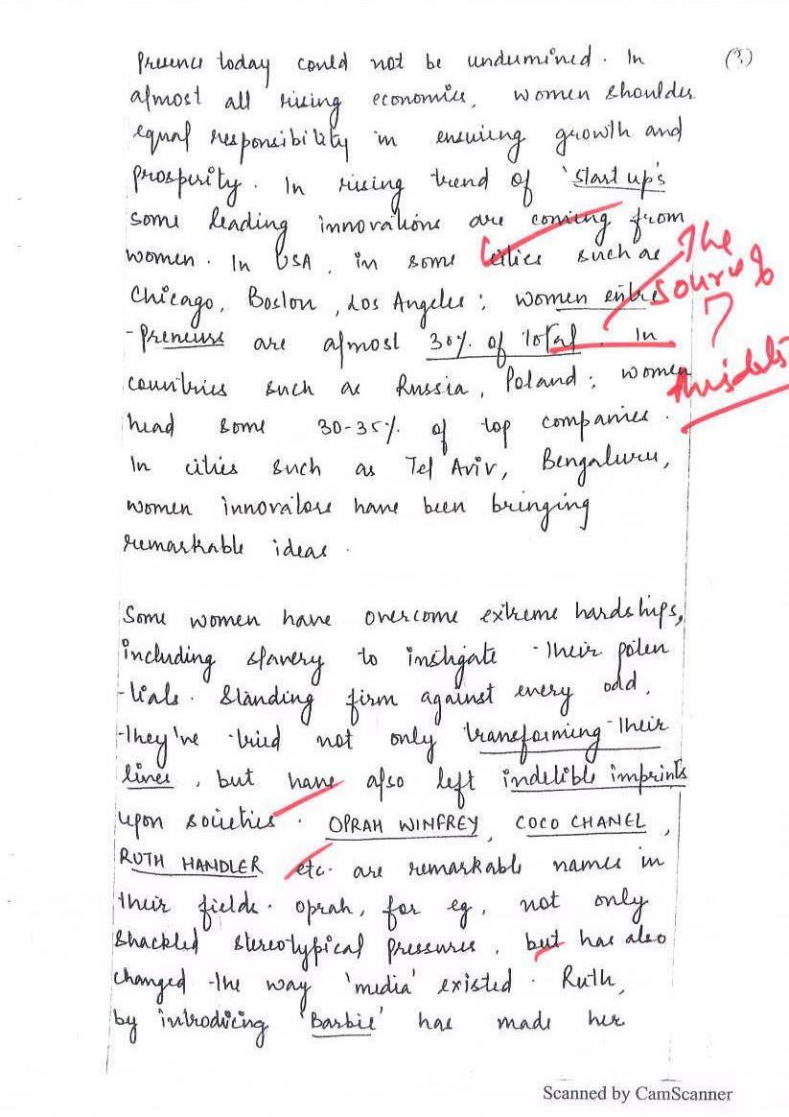 (3)
presence today could not be undermined. In
almost all rising economies, women shoulder
equal responsibility in ensuring growth and
prosperity. In rising trend of 'start up's
some leading innovations are coming from
women. In USA, in some cities such as
Chicago, Boston, Los Angeles; women entre
-preneurs are almost 30% of total. In
countries such as Russia, Poland; women
head some 30-35% of top companies.
In cities such as Tel Aviv, Bengaluru,
women innovators have been bringing
remarkable ideas.
The
source of
?
Some women have overcome extreme hardships,
including slavery to instigate their poten
-tials. Standing firm against every odd,
they've tried not only transforming their
lives, but have also left indelible imprints
upon societies. OPRAH WINFREY, COCO CHANEL,
RUTH HANDLER etc. are remarkable names in
their fields. Oprah, for eg, not only
shackled stereotypical pressures, but has also
changed the way 'media' existed. Ruth,
by introducing 'Barbie' has made her
Scanned by CamScanner